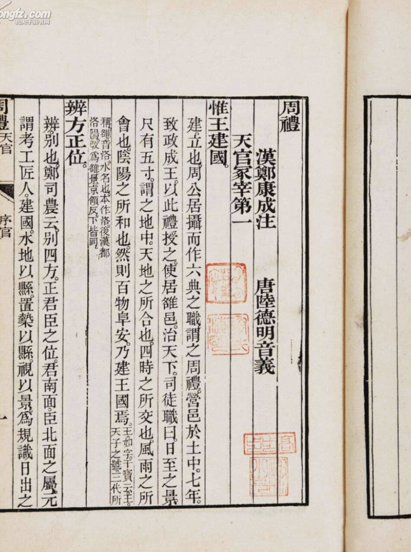 周禮
漢鄭康成注　唐陸德明音義
天官冢宰第一
惟王建國。
建立也周公居攝而作六典之職謂之周禮。營邑於土中。七年。
致政成王以此禮授之使居雒邑治天下。司徒職曰日至之景
尺有五寸謂之地中。天地之所合也四時之所交也風雨之所
會也陰陽之所和也然則百物阜安。乃建王國焉。
天子之號三代所
辨方正位。
辨別也鄭司農云別四方。正君臣之位。君南面。臣北面之屬。元
謂考工匠人。建國。水地以縣置槷以縣視以景。爲規識日出之
周禮
天官
序官
一